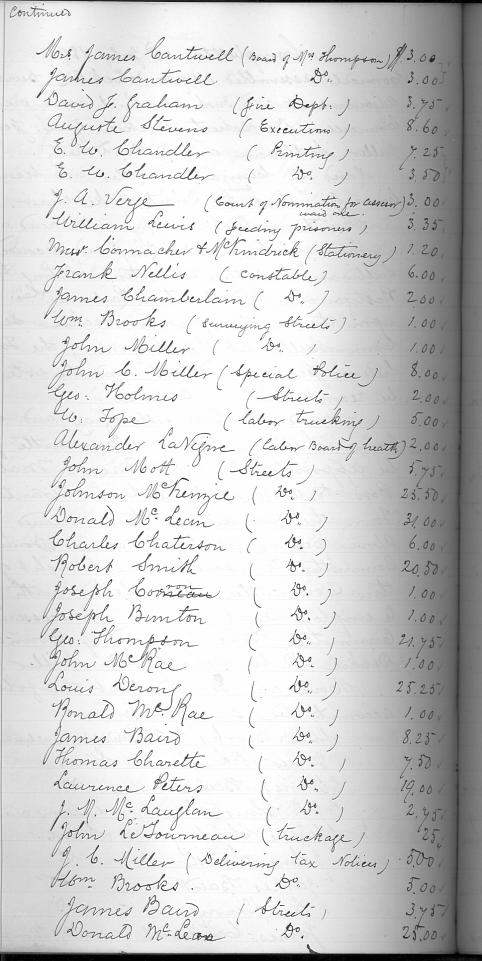 Continued
Mrs James Cantwell (Board of Mrs Thompson) $ 3.00
James Cantwell Do. 3.00
David J. Graham (Fire Dept.) 3.75
Auguste Stevens (Executions) 8.60
E. W. Chandler (Printing) 7.25
E. W. Chandler (Do.) 3.50
J. A. Verge (Court of Nomination for assessor 3.00
ward one.
William Lewis (feeding prisoners) 3.35
Messrs. Connacher & McKindrick (Stationery) 1.20
Frank Nellis (constable) 6.00
James Chamberlain (Do.) 2.00
Wm. Brooks (surveying streets) 1.00
John Miller (Do.) 1.00
John C. Miller (Special Police) 8.00
Geo: Holmes (Streets) 2.00
W. Tope (labor trucking) 5.00
Alexander LaVigne (labor Board of heath) 2.00
John Mott (Streets) 5.75
Johnson McKenzie (Do.) 25.50
Donald McLean (Do.) 31.00
Charles Chaterson (Do.) 6.00
Robert Smith (Do.) 20.50
Joseph (Do.) 1.00
Joseph Bunton (Do.) 1.00
Geo. Thompson (Do.) 21.75
John McRae (Do.) 1.00
Louis Derong (Do.) 25.25
Ronald McRae (Do.) 1.00
James Baird (Do.) 8.25
Thomas Charette (Do.) 7.50
Laurence Peters (Do.) 19.00
J. M. McLauglan (Do.) 2.75
John LeTourneau (truckage) 25
J. C. Miller (Delivering tax Notices) 5.00
Wm. Brooks. Do. 5.00
James Baird (Streets) 3.75
Donald McLean Do. 25.00